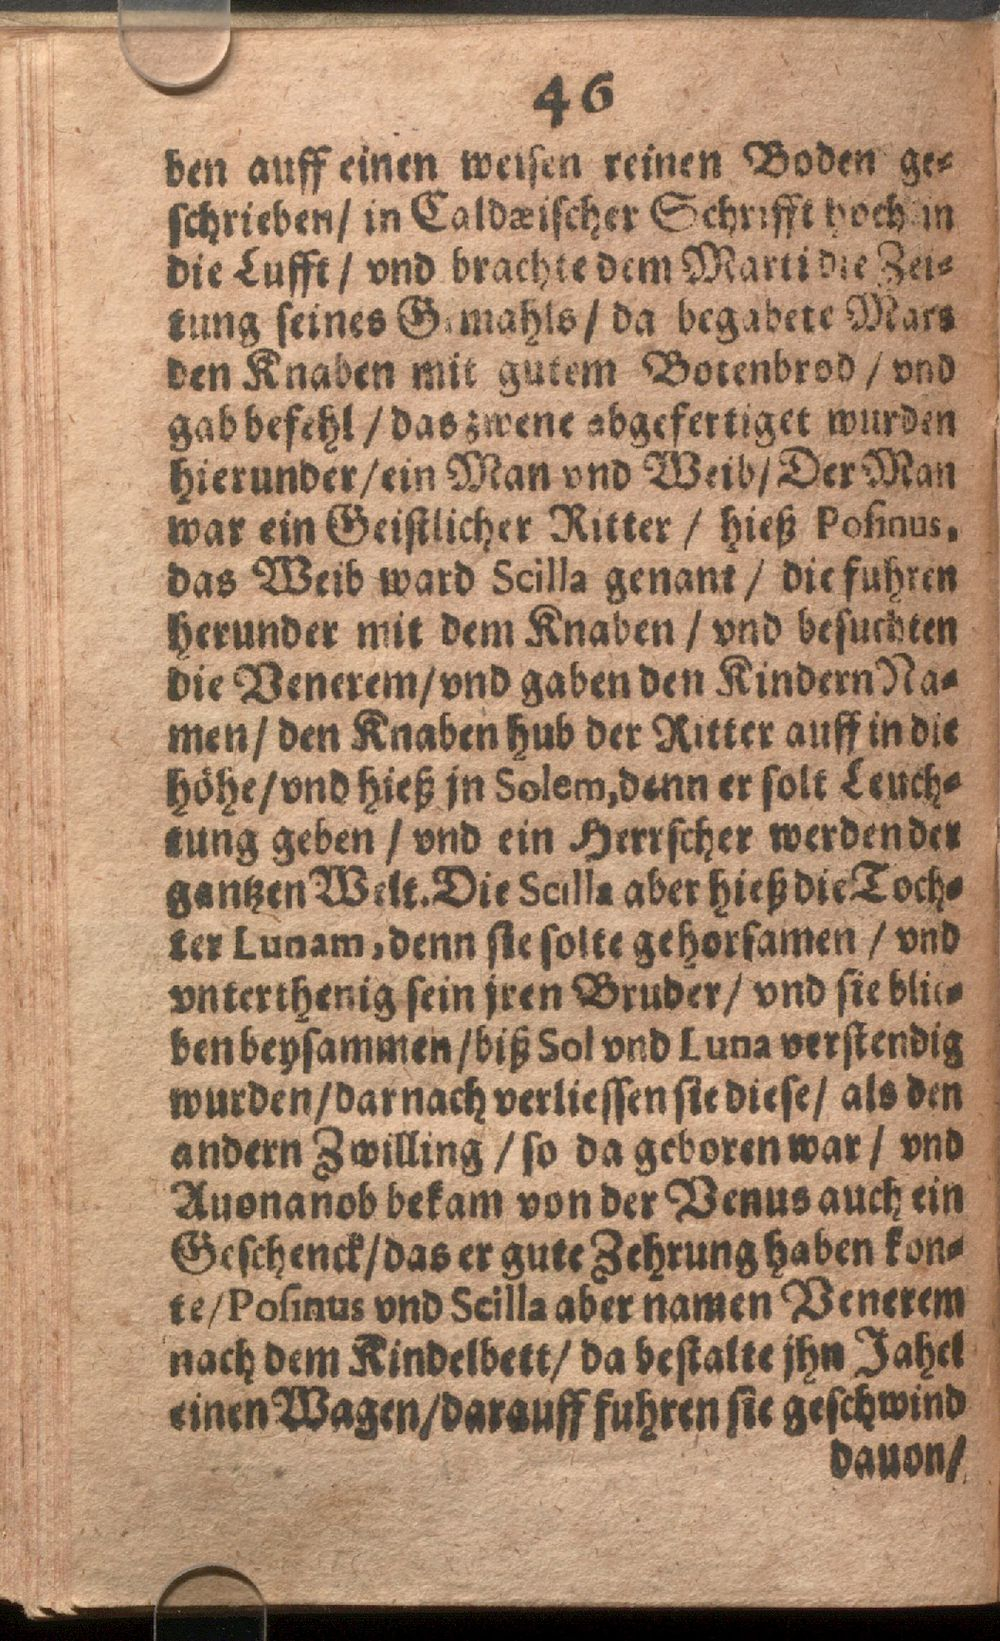 46
ben auff einen weisen reinen Boden ge-
schrieben/ in Caldæischer Schrifft hoch in
die Lufft/ vnd brachte dem Marti die Zei-
tung seines Gemahls/ da begabete Mars
den Knaben mit gutem Botenbrod/ vnd
gab befehl/ das zwene abgefertiget wurden
hierunder/ ein Man vnd Weib/ Der Man
war ein Geistlicher Ritter/ hieß Posinus,
das Weib ward Scilla genant/ die fuhren
herunder mit dem Knaben/ vnd besuchten
die Venerem/ vnd gaben den Kindern Na-
men/ den Knaben hub der Ritter auff in die
höhe/ vnd hieß jn Solem, denn er solt Leuch-
tung geben/ vnd ein Herrscher werden der
gantzen Welt. Die Scilla aber hieß die Toch-
ter Lunam, denn sie solte gehorsamen/ vnd
vnterthenig sein jren Bruder/ vnd sie blie-
ben beysammen/ biß Sol vnd Luna verstendig
wurden/ darnach verliessen sie diese/ als den
andern Zwilling/ so da geboren war/ vnd
Auonanob bekam von der Venus auch ein
Geschenck/ das er gute Zehrung haben kon-
te/ Posinus vnd Scilla aber namen Venerem
nach dem Kindelbett/ da bestalte jhn Jahel
einen Wagen/ darauff fuhren sie geschwind
dauon/